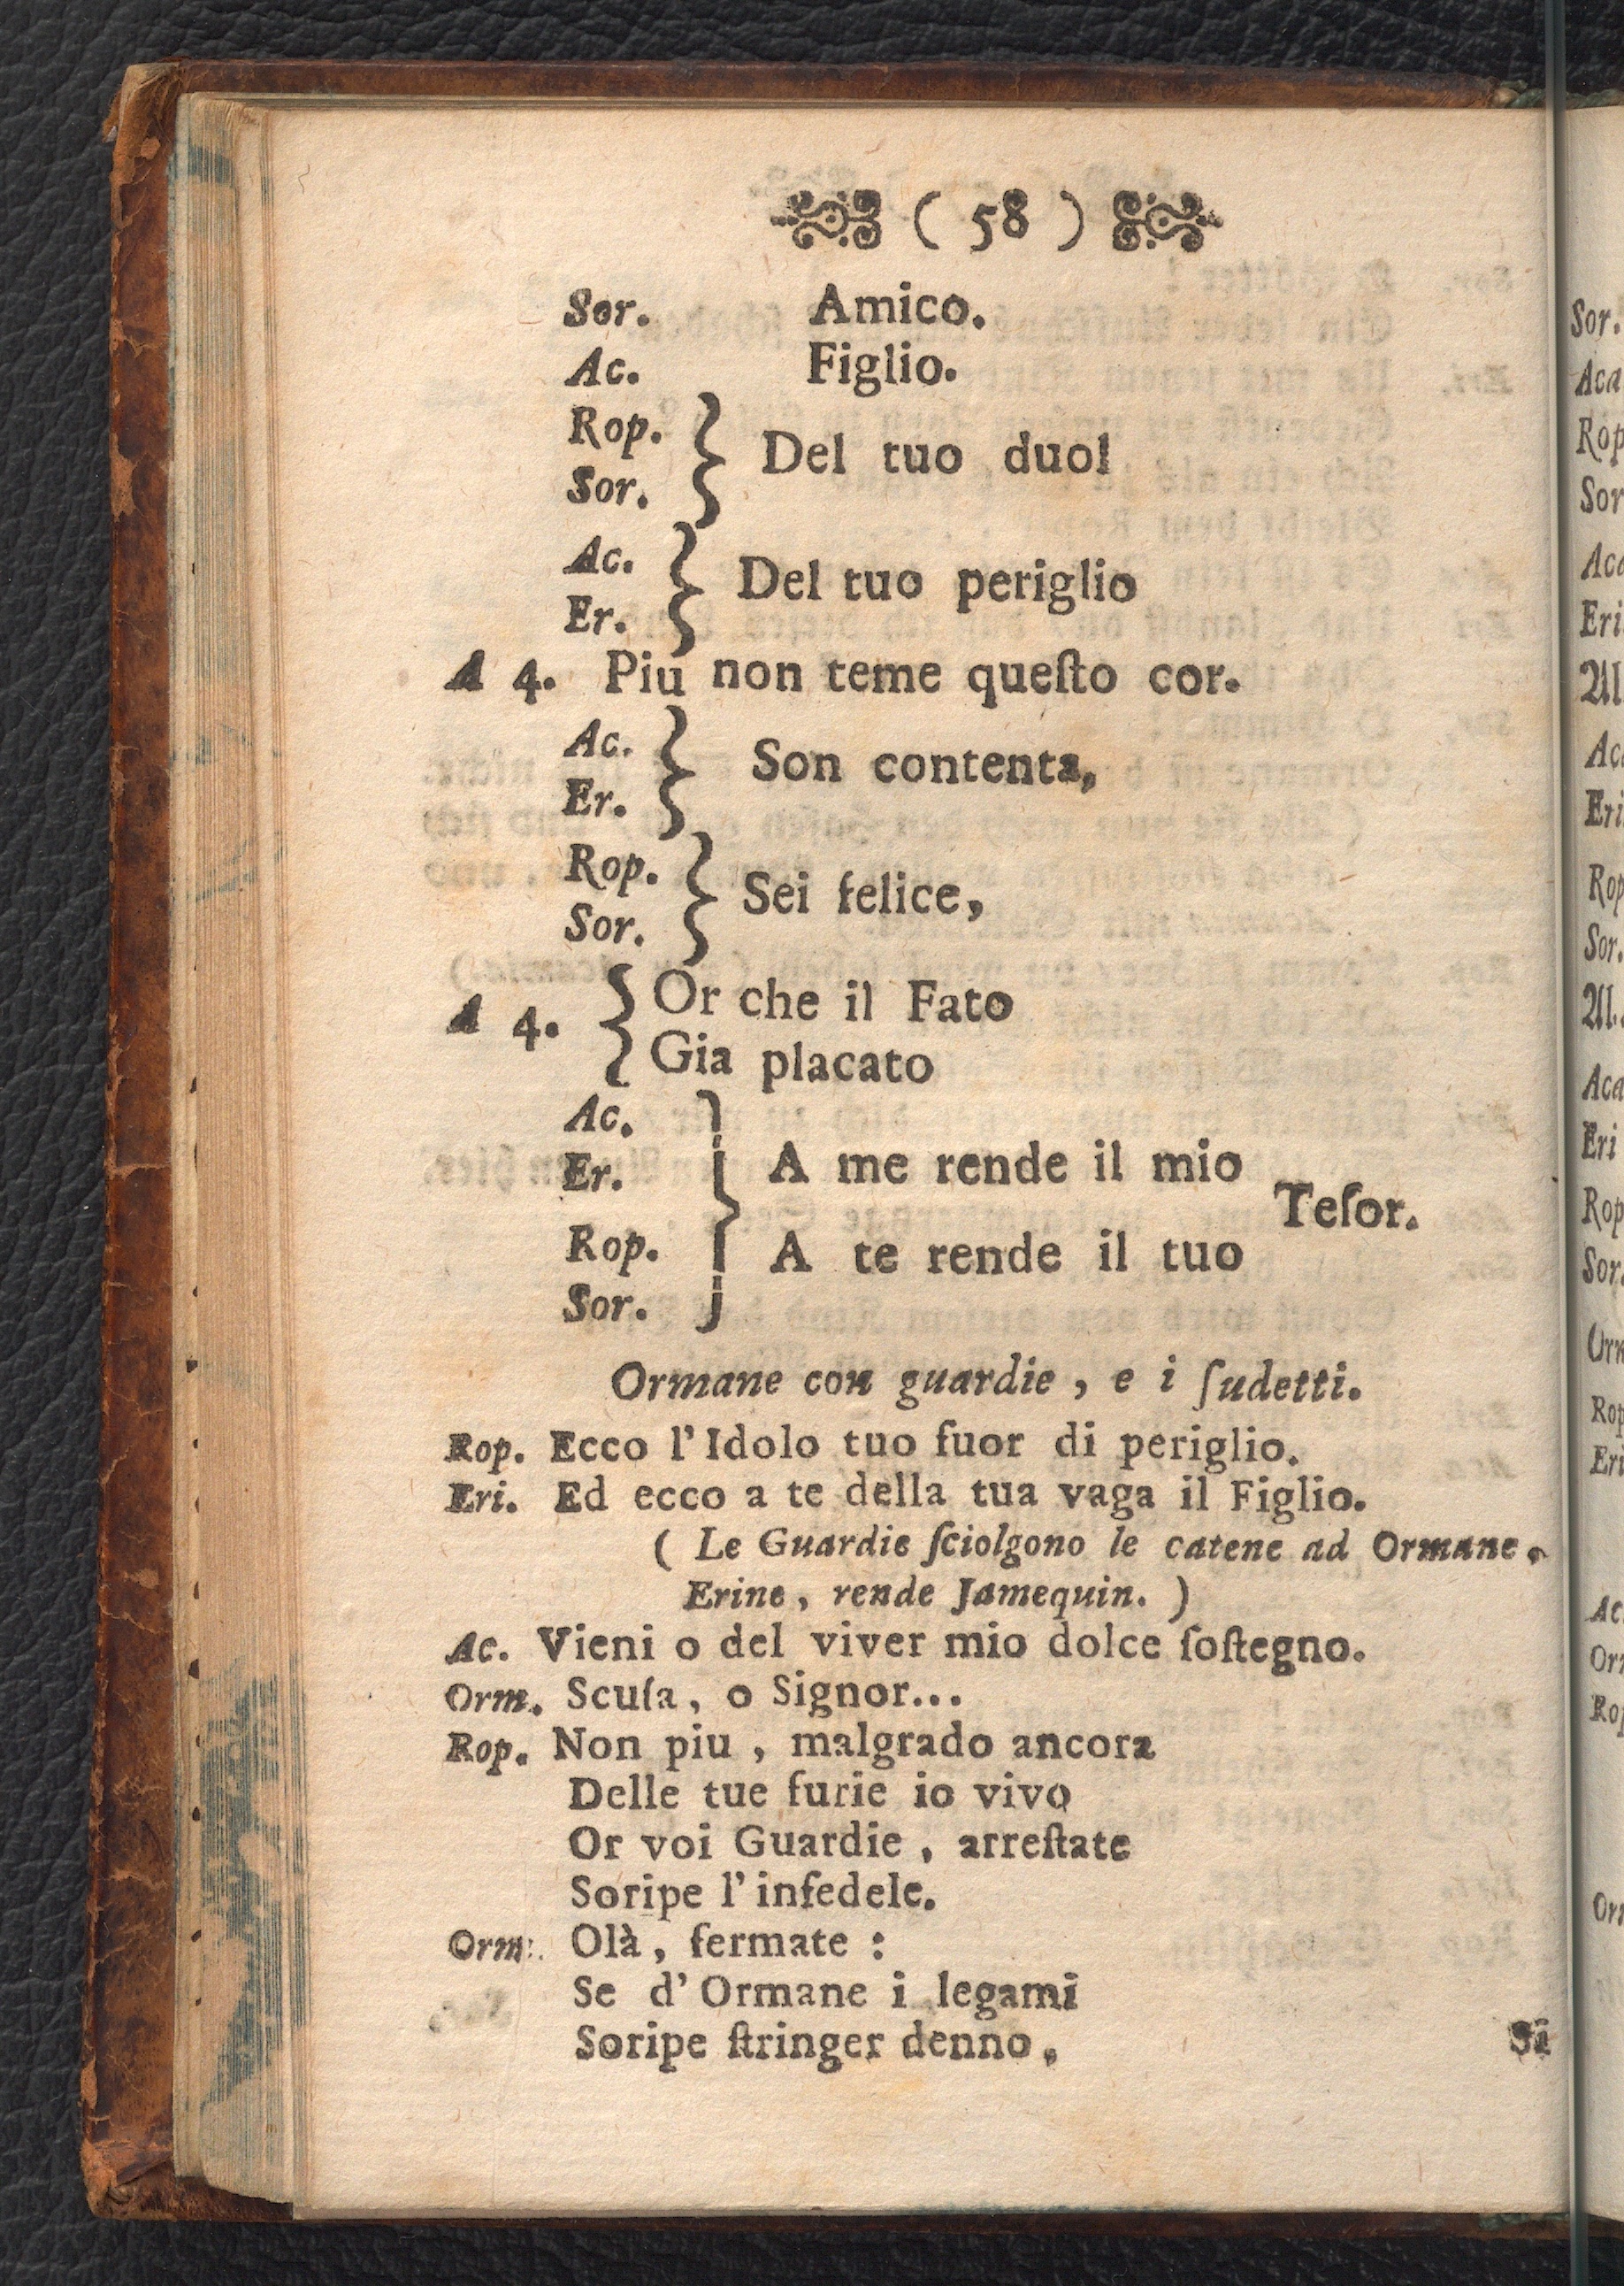 ( 58 )
Sor. Amico.
Ac. Figlio.
Rop.
Sor. } Del tuo duol
Ac.
Er. } Del tuo periglio
A 4. Piu non teme queſto cor.
Ac.
Er. } Son contenta,
Rop.
Sor. } Sei felice,
A 4. { Or che il Fato
Gia placato
Ac.
Er. } A me rende il mio
Teſor.
Rop.
Sor. } A te rende il tuo
Ormane con guardie, e i ſudetti.
Rop. Ecco l'Idolo tuo fuor di periglio.
Eri. Ed ecco a te della tua vaga il Figlio.
( Le Guardie ſciolgono le catene ad Ormane,
Erine, rende Jamequin. )
Ac. Vieni o del viver mio dolce ſoſtegno.
Orm. Scuſa, o Signor...
Rop. Non piu, malgrado ancora
Delle tue furie io vivo
Or voi Guardie, arreſtate
Soripe l'infedele.
Orm. Olà, fermate :
Se d'Ormane i legami
Soripe ſtringer denno,
Si
Sor.
Aca
Rop
Sor
Aca
Eri
Al
Ac
Eri
Rop
Sor.
Al.
Aca
Eri
Rop
Sor.
Orm
Rop
Eri
Ac
Orm
Rop
Orm